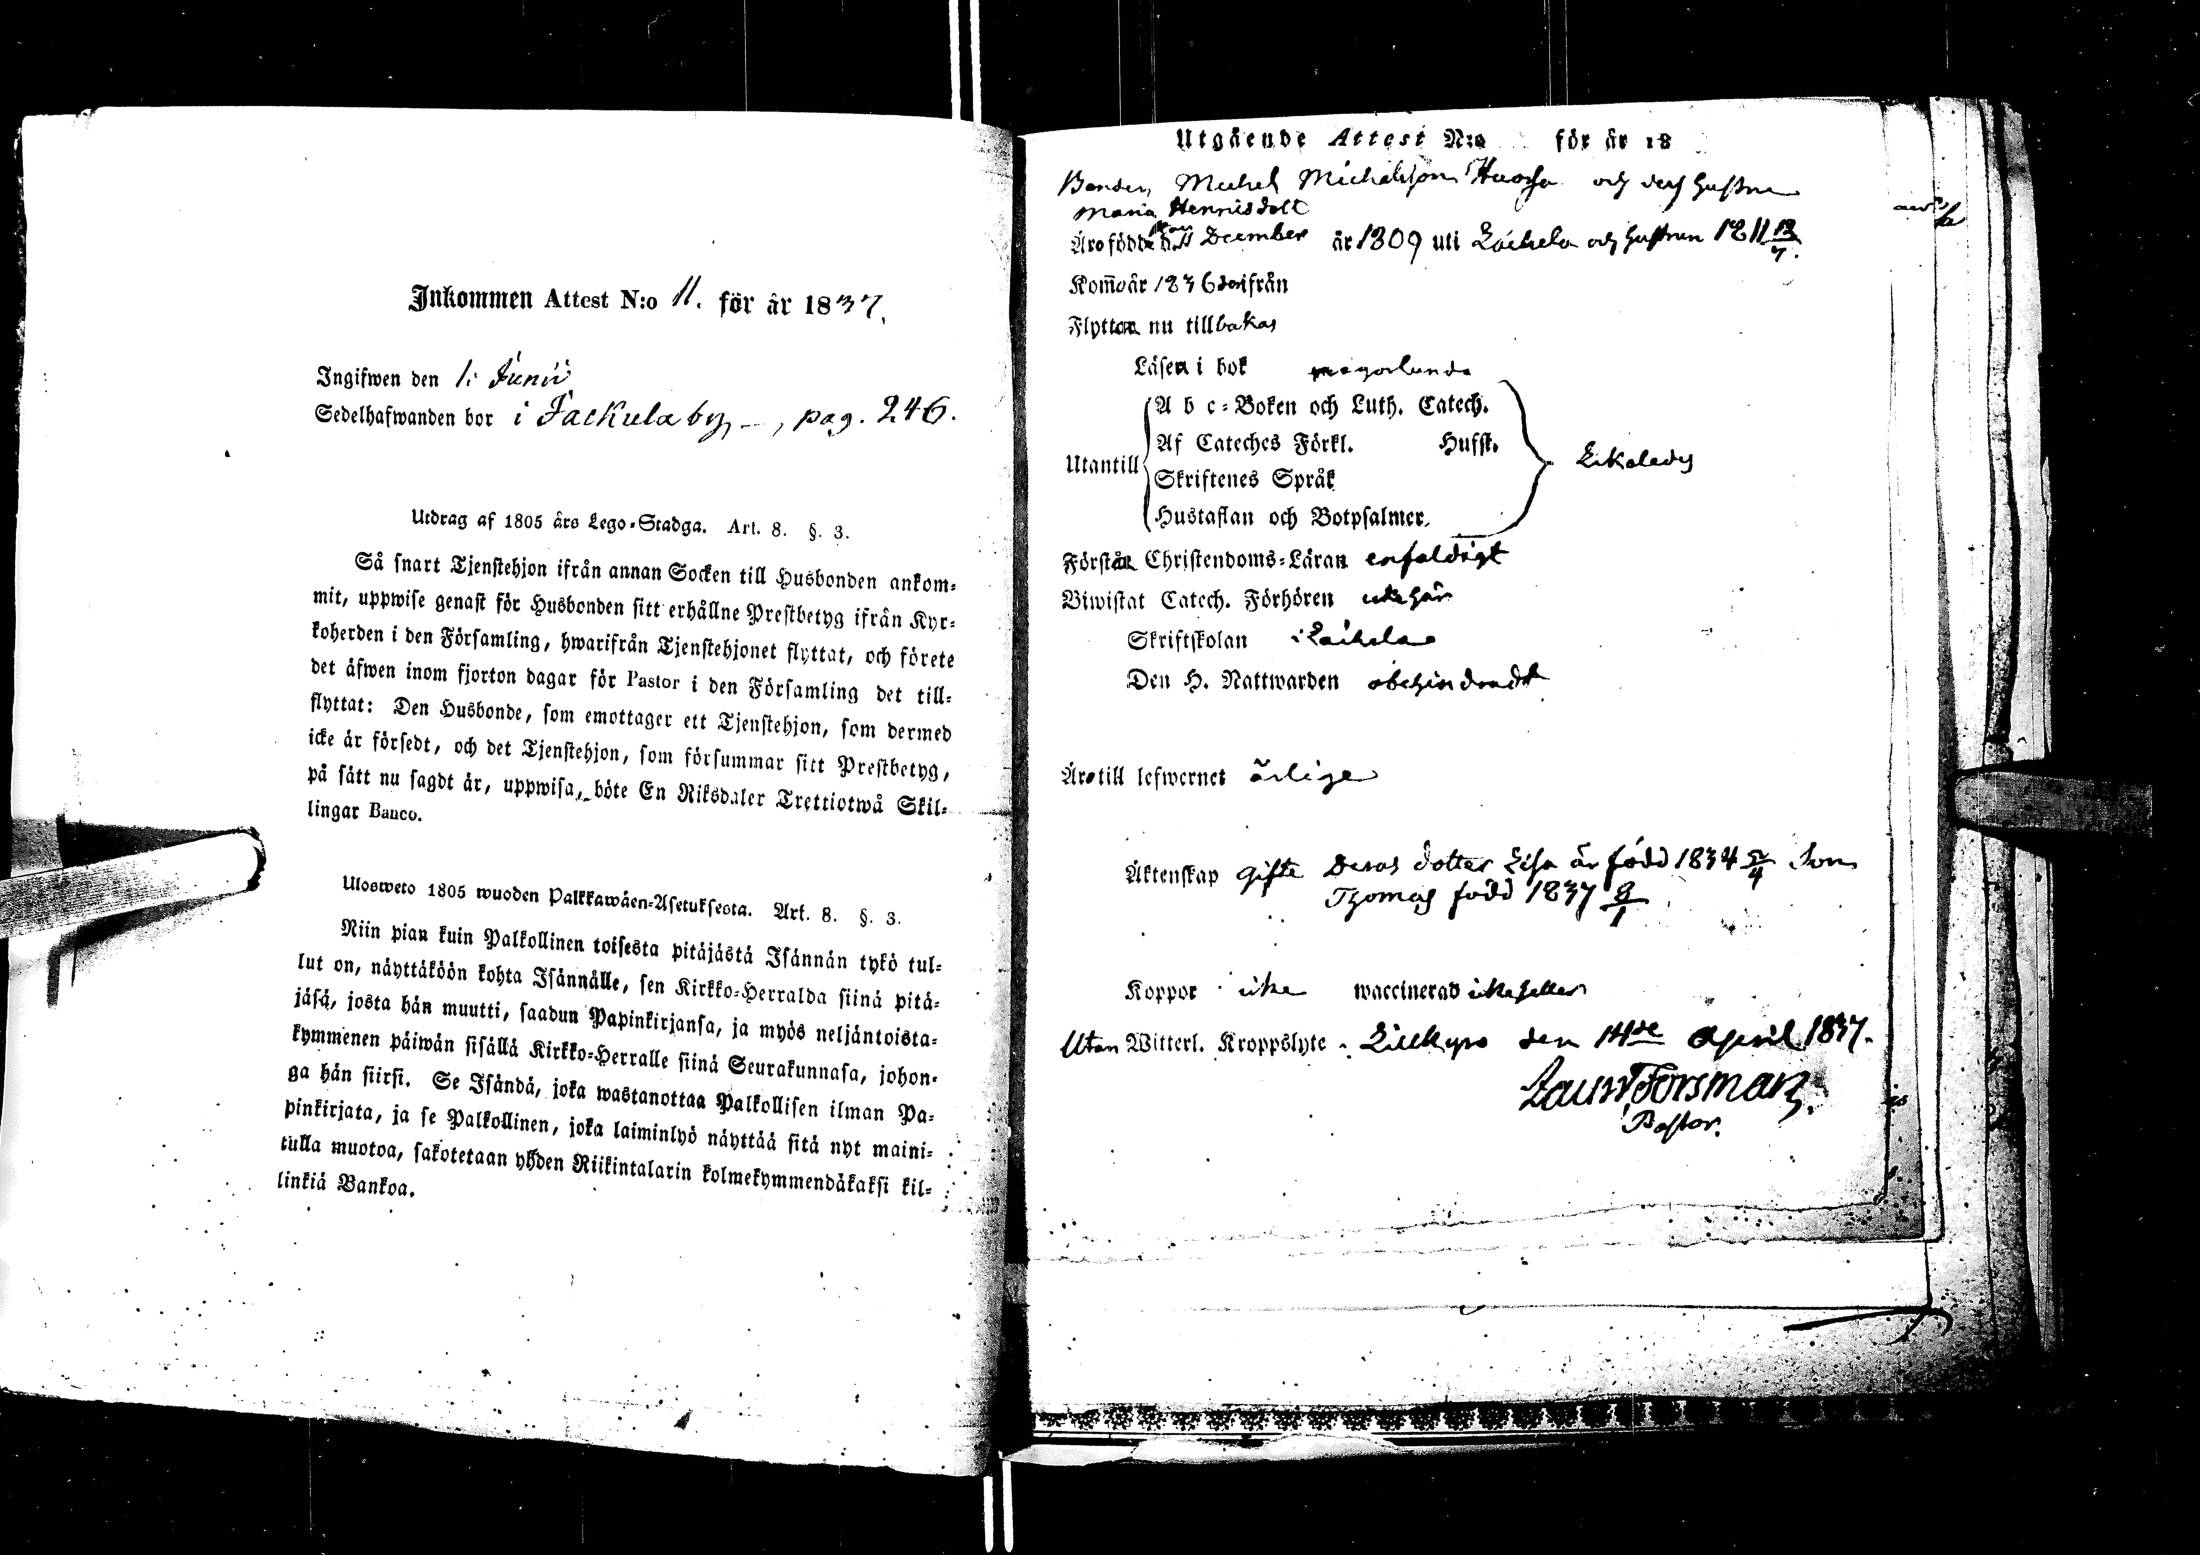 Inkommen Attest N:o 11. för år 1837.
Ingifwen den 1. Junii
Sedelhafwanden bor i Jackula by, pag. 246.
Utdrag af 1805 års Lego-Stadga. Art. 8. §. 3.
Så snart Tjenstehjon ifrån annan Socken till Husbonden ankom-
mit, uppwise genast för Husbonden sitt erhållne Prestbetyg ifrån Kyr-
koherden i den Församling, hwarifrån Tjenstehjonet flyttat, och förete
det äfwen inom fjorton dagar för Pastor i den Församling det till-
flyttat: Den Husbonde, som emottager ett Tjenstehjon, som dermed
icke är försedt, och det Tjenstehjon, som försummar sitt Prestbetyg,
på sätt nu sagdt är, uppwisa, böte En Riksdaler Trettiotwå Skil-
lingar Banco.
Ulosweto 1805 wuoden Palkkawäen-Asetuksesta. Art. 8. §. 3.
Niin pian kuin Palkollinen toisesta pitäjästä Isännän tykö tul-
lut on, näyttäköön kohta Isännälle, sen Kirkko-Herralda siinä pitä-
jäsä, josta hän muutti, saadun Papinkirjansa, ja myös neljäntoista-
kymmenen päiwän sisällä Kirkko-Herralle siinä Seurakunnasa, johon-
ga hän siirsi. Se Isändä, joka wastanottaa Palkollisen ilman Pa-
pinkirjata, ja se Palkollinen, joka laiminlyö näyttää sitä nyt maini-
tulla muotoa, sakotetaan yhden Riikintalarin kolmekymmendäkaksi kil-
linkiä Bankoa.
Utgående Attest N:o för år 18
Bonden Michel Michelsson och des hustru
Maria Henricsdott
Äro födde d. 11 December år 1809 uti Laihela och hustrun 1811 12/7.
Kommo år 1836 derifrån
Flyttar nu tillbakas
Läsen i bok någorlunda
Utantill
A b c-Boken och Luth. Catech.
Af Cateches Förkl. Hufst.
Skriftenes Språk
Hustaflan och Botpsalmer.
Likaledes
Förstår Christendoms-Läran enfaldigt
Biwistat Catech. Förhören icke här
Skriftskolan i Laihela
Den H. Nattwarden obehindradt
Äro till lefwernet ärlige
Äktenskap gifte Deras dotter Lisa är född 1834 5/4 Son
Thomas född 1837 9/1
Koppor icke waccinerad icke heller
Utan Witterl. Kroppslyte. Lillkyro den 14de April 1837.
Forsman
Pastor.